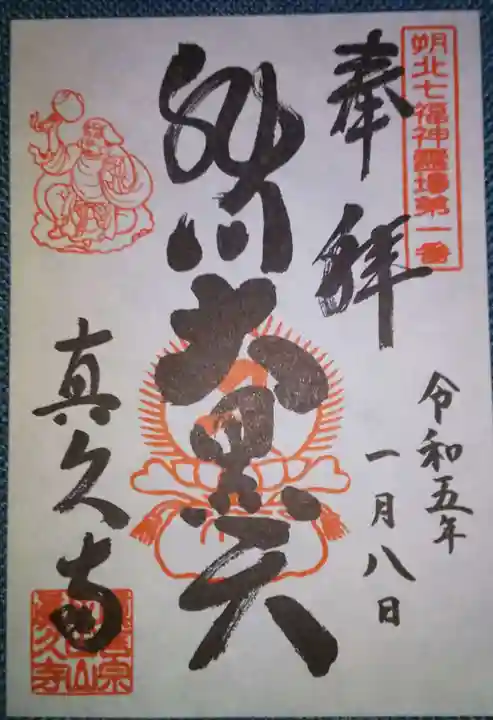 朔北七福神霊場第一番
奉拝
令和五年
一月八日
大黒天
真久寺